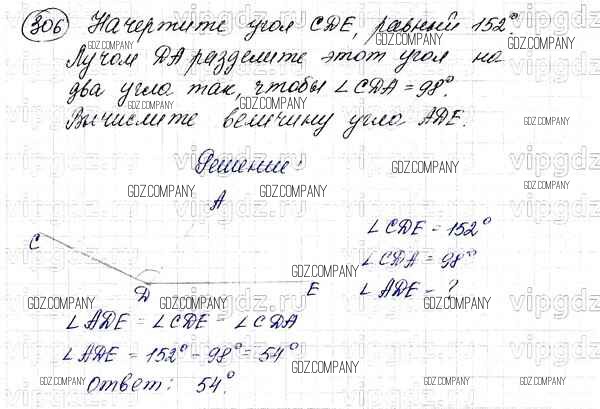 306 Начертите угол CDE, равный 152°.
Лучом DA разделите этот угол на
два угла так, чтобы ∠CDA = 98°.
Вычислите величину угла ADE.
Решение:
A
C
D
E
∠CDE = 152°
∠CDA = 98°
∠ADE - ?
∠ADE = ∠CDE - ∠CDA
∠ADE = 152° - 98° = 54°
Ответ: 54°.
GDZ.COMPANY
vipgdz.ru